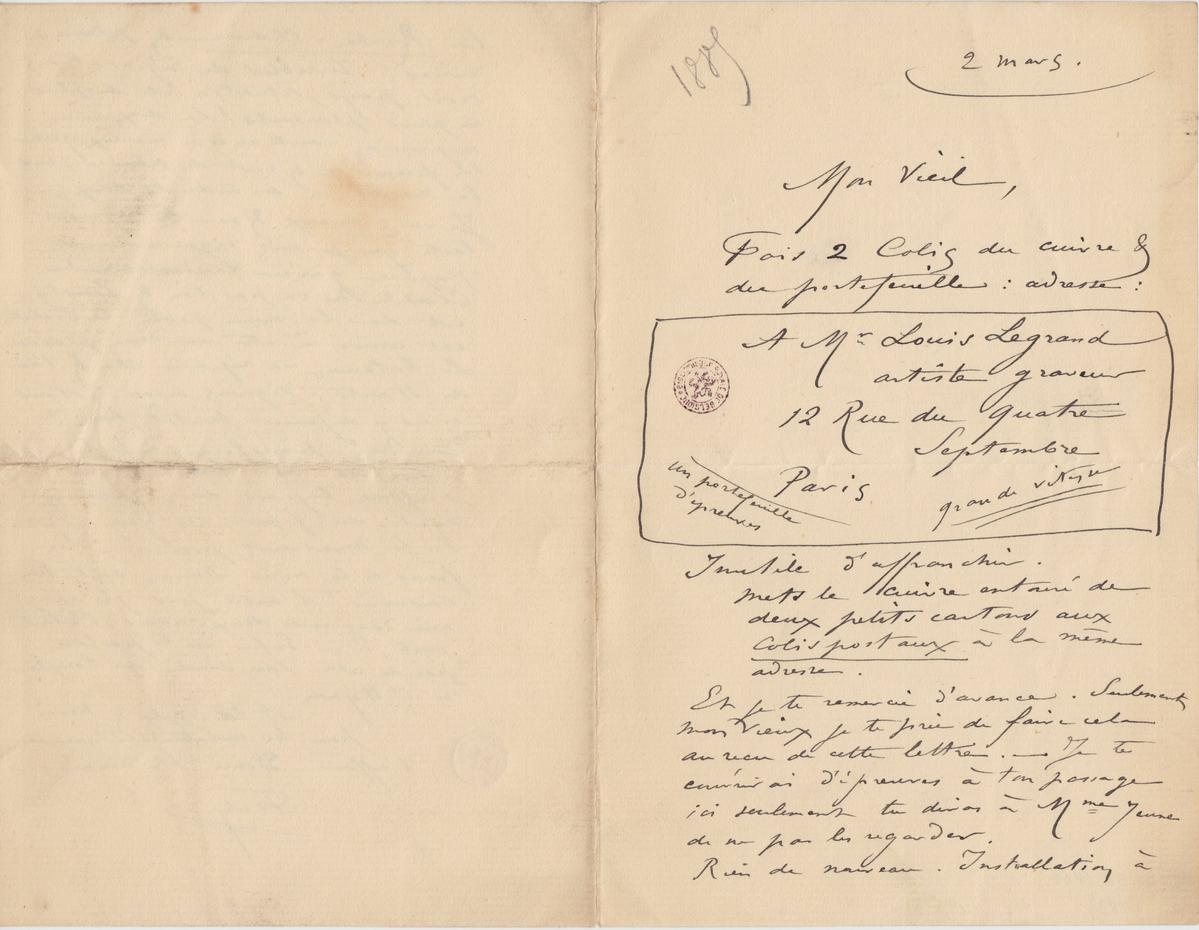 1885
2 mars.
Mon Vieil,
Fais 2 Colis du cuivre &
du portefeuille : adresse :
A Mr Louis Legrand
artiste graveur
12 Rue du Quatre
Septembre
Paris
un portefeuille
d'épreuves
grande vitesse
Inutile d'affranchir.
Mets le cuivre entouré de
deux petits cartons aux
Colis postaux à la même
adresse.
Et je te remercie d'avance. Seulement
mon Vieux je te prie de faire cela
au recu de cette lettre. — Je te
couvrirai d'épreuves à ton passage
ici seulement tu diras à Mme Jeune
de ne pas les regarder.
Rien de nouveau. Installation à